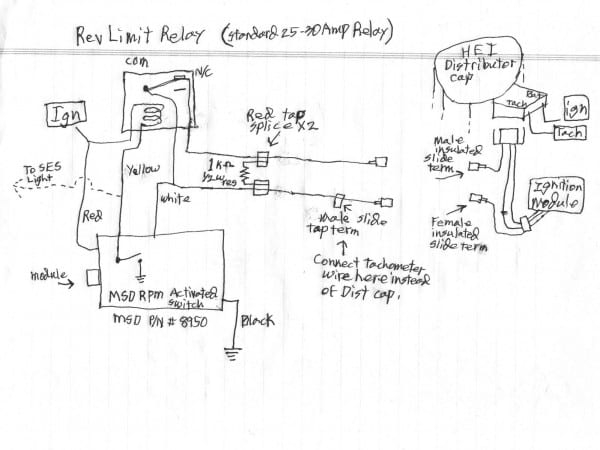 Rev Limit Relay (standard 25-30Amp Relay)
com
N/C
Ign
Red tap
splice x2
1K
1/2 W
res
To SES
Light
Yellow
white
Red
male slide
tap term
Connect tachometer
wire here instead
of Dist cap.
module
MSD RPM Activated
switch
MSD P/N # 8950
Black
HEI
Distributor
cap
Bat
Tach
ign
Tach
male
insulated
slide
term
Ignition
Module
Female
insulated
slide term